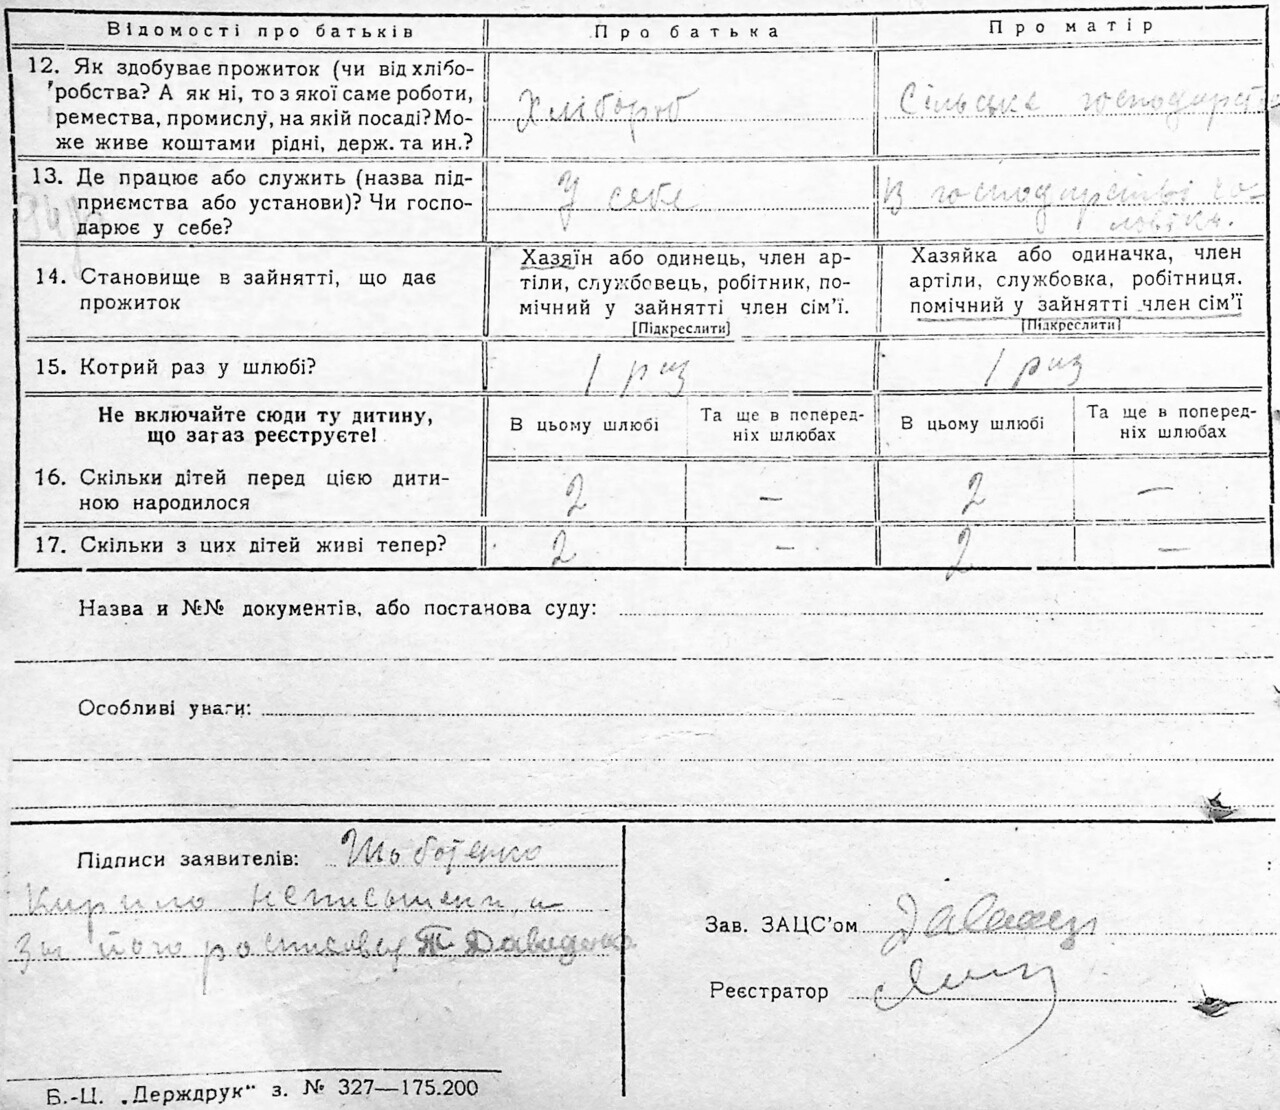 Відомості про батьків Про батька Про матір
12. Як здобуває прожиток (чи від хлібо-
робства? А як ні, то з якої саме роботи,
ремества, промислу, на якій посаді? Мо-
же живе коштами рідні, держ. та ин.?
Хлібороб
Сільське господарст
13. Де працює або служить (назва під-
приємства або установи)? Чи госпо-
дарює у себе?
У себе
В господарстві чо-
ловіка.
14. Становище в зайнятті, що дає
прожиток
Хазяїн або одинець, член ар-
тіли, службовець, робітник, по-
мічний у зайнятті член сім'ї.
[Підкреслити]
Хазяйка або одиначка, член
артіли, службовка, робітниця.
помічний у зайнятті член сім'ї
[Підкреслити]
15. Котрий раз у шлюбі? 1 раз 1 раз
Не включайте сюди ту дитину,
що загаз реєструєте!
В цьому шлюбі
Та ще в поперед-
ніх шлюбах
В цьому шлюбі
Та ще в поперед-
ніх шлюбах
16. Скільки дітей перед цією дити-
ною народилося
2 — 2 —
17. Скільки з цих дітей живі тепер? 2 — 2 —
Назва и №№ документів, або постанова суду:
Особливі уваги:
Підписи заявителів:
Кирило неписьмени, а
За його росписовся Давиденко
Зав. ЗАЦС'ом
Реєстратор
Б.-Ц. „Держдрук" з. № 327—175.200